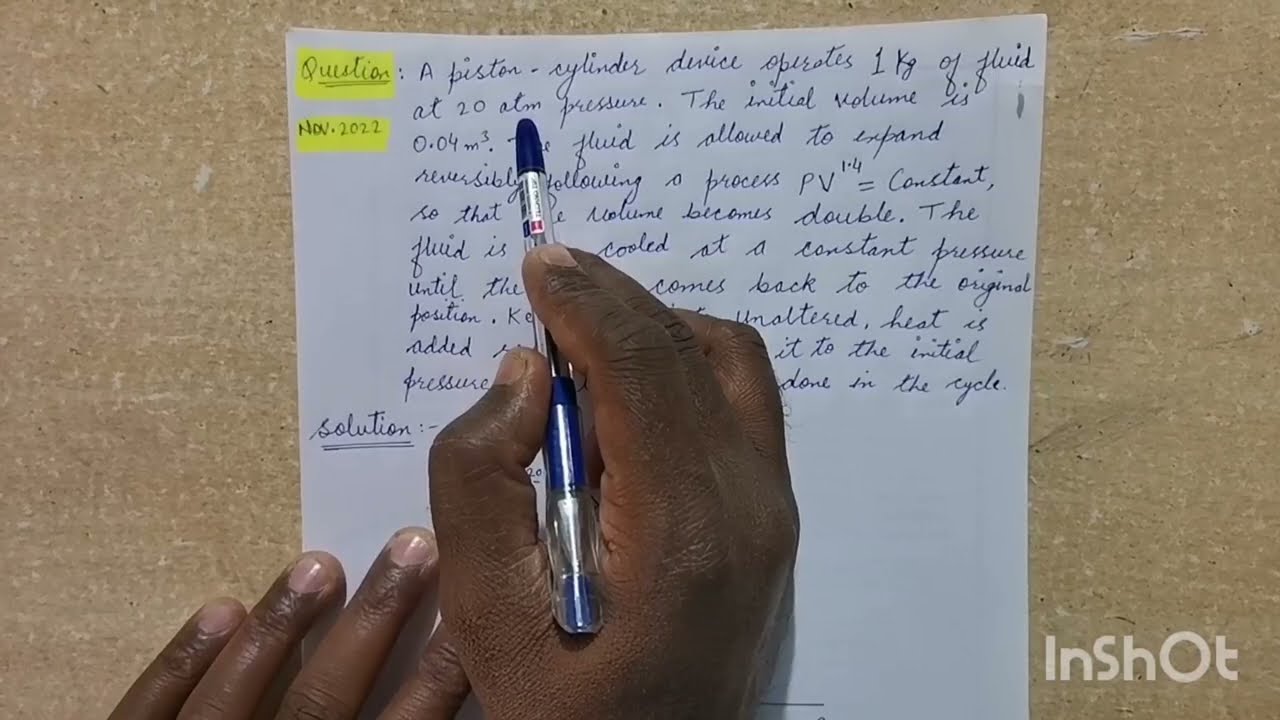 Question : A piston - cylinder device operates 1 Kg of fluid
at 20 atm pressure. The initial volume is
Nov. 2022
0.04 m³. fluid is allowed to expand
reversibly following a process PV^1.4 = Constant,
so that volume becomes double. The
fluid is cooled at a constant pressure
until the comes back to the original
position. unaltered, heat is
added it to the initial
pressure done in the cycle.
Solution :-
20
InShOt